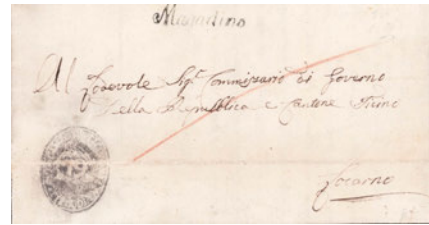 Magadino
Al Lodevole Sigr. Commissario di Governo
della Repubblica e Cantone Ticino
Locarno